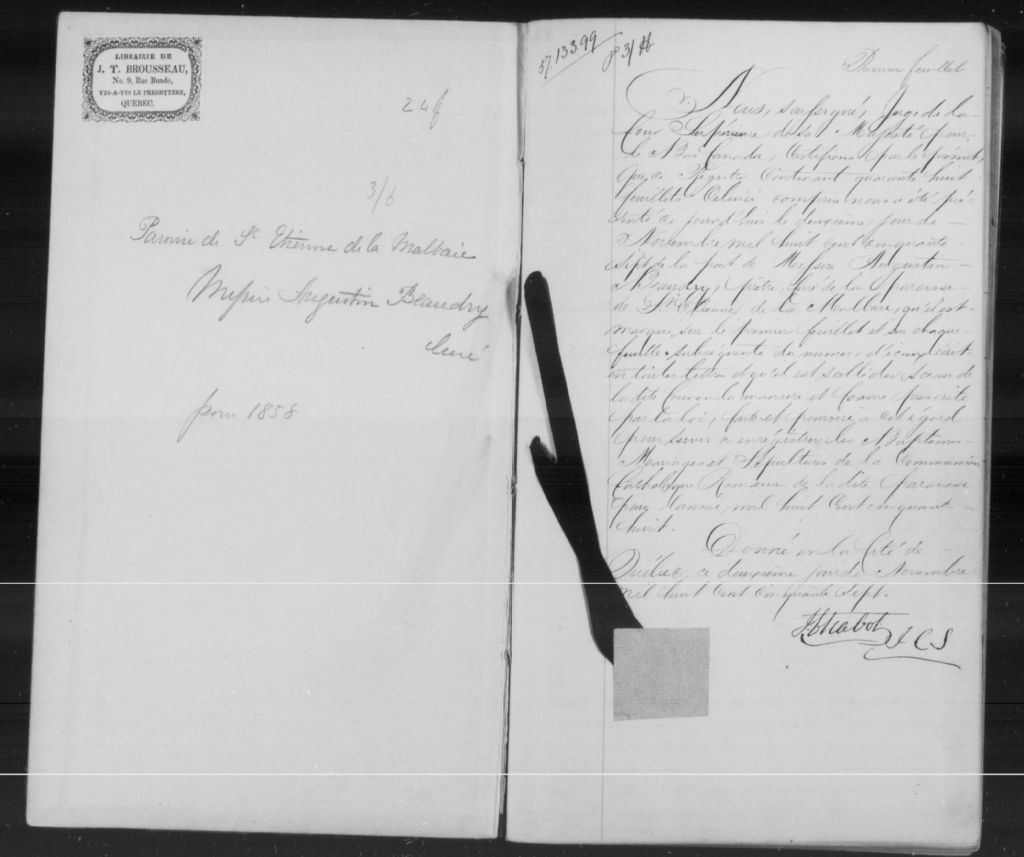 LIBRAIRIE DE
J. T. BROUSSEAU,
No. 9, Rue Buade,
VIS-A-VIS LE PRESBYTÈRE,
QUEBEC.
24f
3/6
Paroisse de St Etienne de la Malbaie
Messire Augustin Beaudry
Curé
pour 1858
57.13399
Premier feuillet
Nous, soussigné, Juge de la
Cour Supérieure de Sa Majesté pour
le Bas Canada, Certifions par le présent
que ce Régistre Contenant quarante huit
feuillets Celui ci compris nous a été pré-
senté ce jourd'hui le deuxième jour de
Novembre mil huit cent cinquante
Sept de la part de Messire Augustin
Beaudry, prêtre, curé de la paroisse
de St Etienne de la Malbaie, qu'il est
marqué sur le premier feuillet et sur chaque
feuillet subséquent du numero d'iceux écrit
en toutes lettres et qu'il est scellé du sceau de
la dite Cour en la manière et forme prescrite
par la loi, faite et pourvue à cet égard
pour servir a enrégistrer les Baptêmes
Mariages et Sépultures de la Communion
Catholique Romaine de la dite paroisse
pour l'année mil huit Cent cinquante
huit.
Donné en la Cité de
Québec, ce deuxième jour de Novembre
mil huit Cent Cinquante Sept.
Chabot J C S